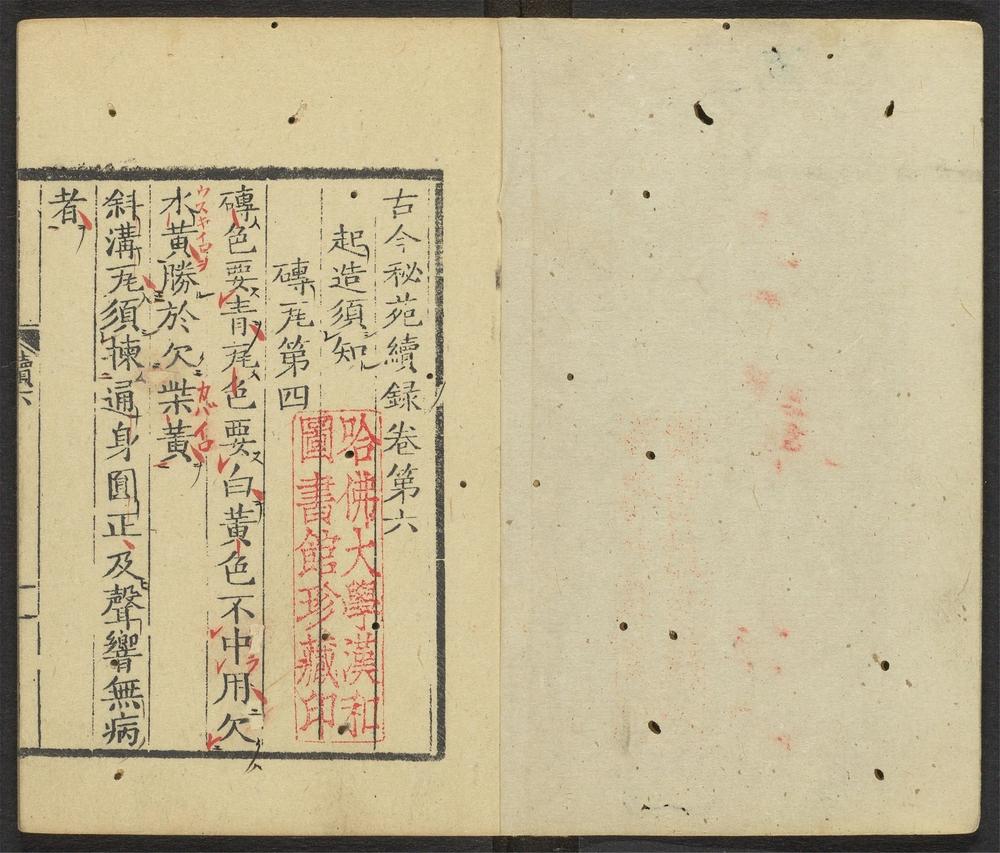 古今秘苑續録卷第六
起造須知
磚瓦第四
磚色要青瓦色要白黃色不中用欠
水黃勝於欠柴黃
ウスキイロヲ
カバイロ
斜溝瓦須揀通身圓正及聲響無病
者
續六
一
哈佛大學漢和
圖書館珍藏印